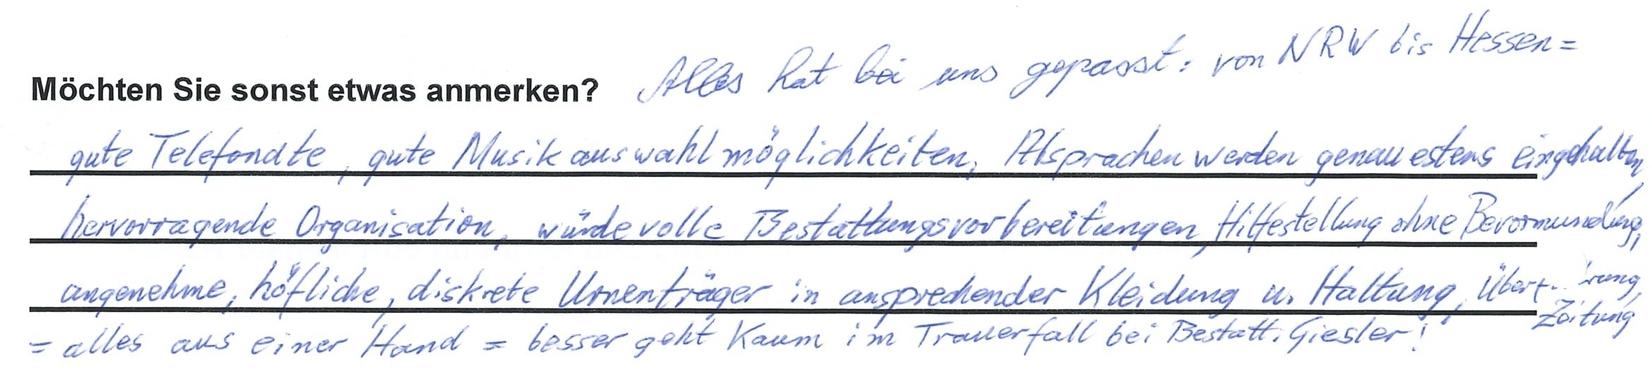 Möchten Sie sonst etwas anmerken? Alles hat bei uns gepasst: von NRW bis Hessen=
gute Telefondte, gute Musikauswahlmöglichkeiten, Absprachen werden genauestens eingehalten,
hervorragende Organisation, würdevolle Bestattungsvorbereitungen, Hilfestellung ohne Bevormundung,
angenehme, höfliche, diskrete Urnenträger in ansprechender Kleidung u. Haltung,
Zeitung
= alles aus einer Hand = besser geht kaum im Trauerfall bei Bestatt. Giesler!